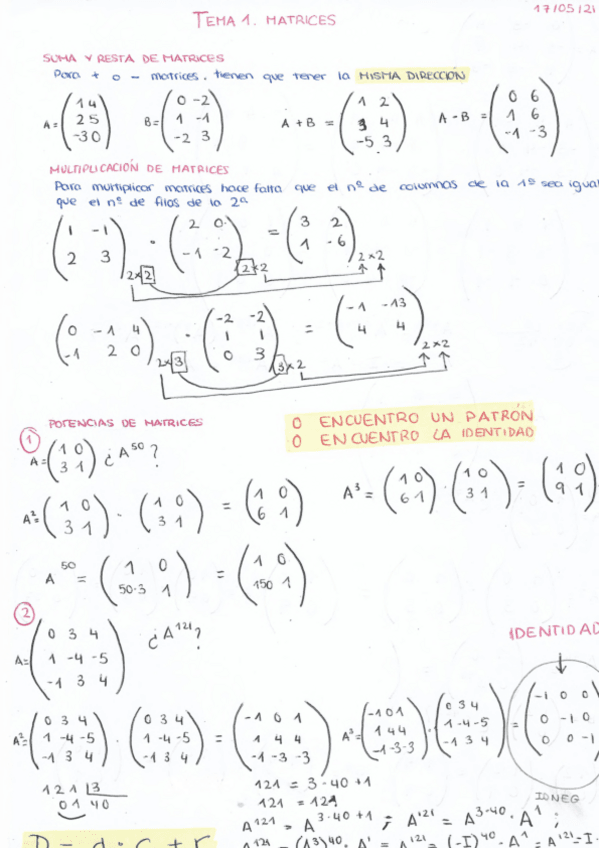 17/05/21
TEMA 1. MATRICES
SUMA Y RESTA DE MATRICES
Para + o - matrices, tienen que tener la MISMA DIRECCIÓN
A= (1 4 / 2 5 / -3 0) B= (0 -2 / 1 -1 / -2 3) A + B = (1 2 / 3 4 / -5 3) A - B = (0 6 / 1 6 / -1 -3)
MULTIPLICACIÓN DE MATRICES
Para multiplicar matrices hace falta que el nº de columnas de la 1ª sea igual
que el nº de filas de la 2ª
(1 -1 / 2 3) 2x2 · (2 0 / -1 -2) 2x2 = (3 2 / 1 -6) 2x2
(0 -1 4 / -1 2 0) 2x3 · (-2 -2 / 1 1 / 0 3) 3x2 = (-1 -13 / 4 4) 2x2
POTENCIAS DE MATRICES
O ENCUENTRO UN PATRÓN
O ENCUENTRO LA IDENTIDAD
1 A= (1 0 / 3 1) ¿A^50?
A²= (1 0 / 3 1) · (1 0 / 3 1) = (1 0 / 6 1) A³ = (1 0 / 6 1) · (1 0 / 3 1) = (1 0 / 9 1)
A^50 = (1 0 / 50·3 1) = (1 0 / 150 1)
2 A= (0 3 4 / 1 -4 -5 / -1 3 4) ¿A^121?
IDENTIDAD
A²= (0 3 4 / 1 -4 -5 / -1 3 4) · (0 3 4 / 1 -4 -5 / -1 3 4) = (-1 0 1 / 1 4 4 / -1 -3 -3) A³= (-1 0 1 / 1 4 4 / -1 -3 -3) · (0 3 4 / 1 -4 -5 / -1 3 4) = (-1 0 0 / 0 -1 0 / 0 0 -1)
IDNEG
121 3
01 40
121 = 3·40 +1
121 = 121
A^121 = A^3·40+1 ; A^121 = A^3·40 · A^1 ;
A^121 = (A³)^40 · A^1 = A^121 = (-I)^40 · A^1 = A^121 = -I·
D = d · c + r